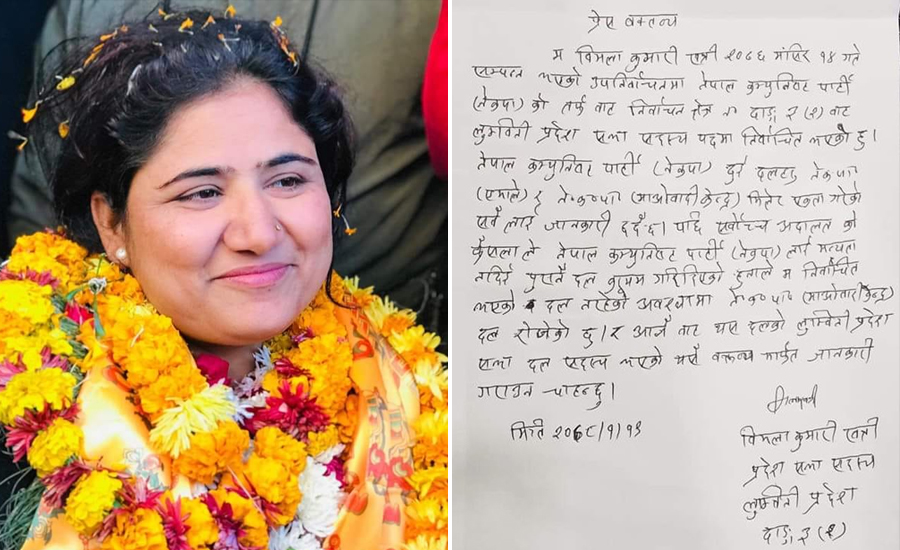 प्रेस वक्तव्य
म विमला कुमारी खत्री २०७६ मंसिर १४ गते
सम्पन्न भएको उपनिर्वाचनमा नेपाल कम्युनिष्ट पार्टी
(नेकपा) को तर्फ बाट निर्वाचन क्षेत्र नं दाङ ३ (२) बाट
लुम्बिनी प्रदेश सभा सदस्य पदमा निर्वाचित भएको हु।
नेपाल कम्युनिष्ट पार्टी (नेकपा) दुई दलहरु ने.क.पा
(एमाले) र ने.क.पा (माओवादी केन्द्र) मिलेर एकता गरेको
सबै लाई जानकारी हुदैछ। पछि सर्वोच्च अदालत को
फैसला ले नेपाल कम्युनिष्ट पार्टी (नेकपा) लाई मान्यता
नदिई पुरानै दल कायम गरिदिएको हुनाले म निर्वाचित
भएको दल नरहेको अवस्थामा ने.क.पा (माओवादी केन्द्र)
दल रोजेको हु। र आजै बाट यस दलको लुम्बिनी प्रदेश
सभा दल सदस्य भएको यसै वक्तव्य मार्फत जानकारी
गराउन चाहन्छु।
मिति २०७८/१/१३
विमला कुमारी खत्री
प्रदेश सभा सदस्य
लुम्बिनी प्रदेश
दाङ ३ (२)